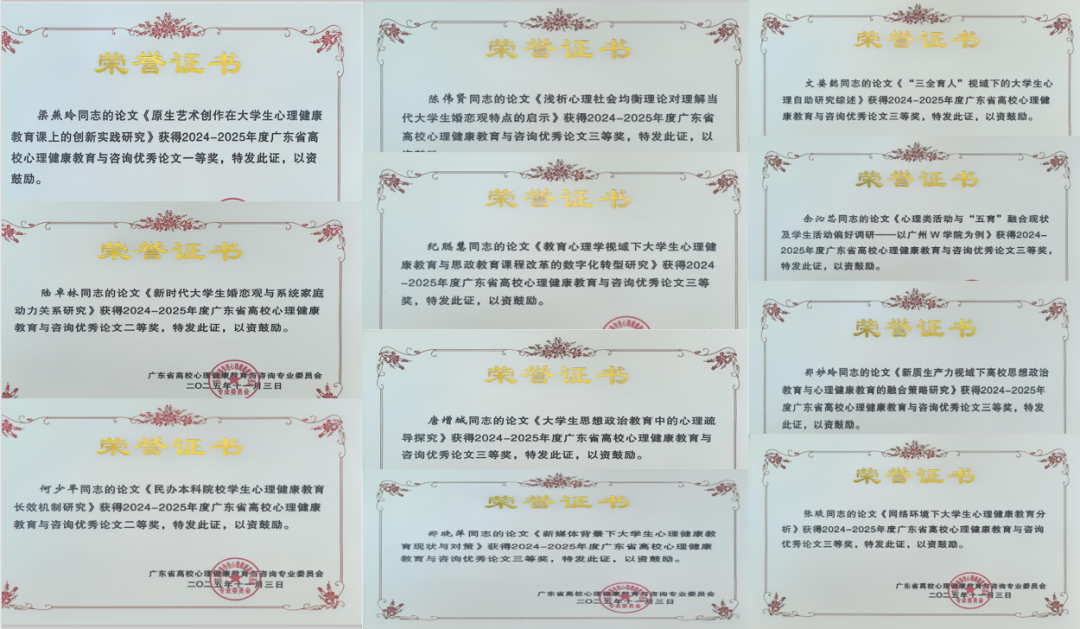 荣誉证书
梁燕玲同志的论文《原生艺术创作在大学生心理健康
教育课上的创新实践研究》获得2024-2025年度广东省高
校心理健康教育与咨询优秀论文一等奖，特发此证，以资
鼓励。
荣誉证书
陆卓林同志的论文《新时代大学生婚恋观与系统家庭
动力关系研究》获得2024-2025年度广东省高校心理健康
教育与咨询优秀论文二等奖，特发此证，以资鼓励。
广东省高校心理健康教育与咨询专业委员会
二〇二五年十一月三日
荣誉证书
何少平同志的论文《民办本科院校学生心理健康教育
长效机制研究》获得2024-2025年度广东省高校心理健康
教育与咨询优秀论文二等奖，特发此证，以资鼓励。
广东省高校心理健康教育与咨询专业委员会
二〇二五年十一月三日
荣誉证书
陈伟贤同志的论文《浅析心理社会均衡理论对理解当
代大学生婚恋观特点的启示》获得2024-2025年度广东省
高校心理健康教育与咨询优秀论文三等奖，特发此证，以
荣誉证书
纪鹏慧同志的论文《教育心理学视域下大学生心理健
康教育与思政教育课程改革的数字化转型研究》获得2024
-2025年度广东省高校心理健康教育与咨询优秀论文三等
奖，特发此证，以资鼓励。
荣誉证书
唐增城同志的论文《大学生思想政治教育中的心理疏
导探究》获得2024-2025年度广东省高校心理健康教育与
咨询优秀论文三等奖，特发此证，以资鼓励。
荣誉证书
郑晓萍同志的论文《新媒体背景下大学生心理健康教
育现状与对策》获得2024-2025年度广东省高校心理健康
教育与咨询优秀论文三等奖，特发此证，以资鼓励。
广东省高校心理健康教育与咨询专业委员会
二〇二五年十一月三日
荣誉证书
文姜懿同志的论文《“三全育人”视域下的大学生心
理自助研究综述》获得2024-2025年度广东省高校心理健
康教育与咨询优秀论文三等奖，特发此证，以资鼓励。
荣誉证书
余沁芯同志的论文《心理类活动与“五育”融合现状
及学生活动偏好调研——以广州W学院为例》获得2024-
2025年度广东省高校心理健康教育与咨询优秀论文三等奖，
特发此证，以资鼓励。
荣誉证书
郑妙玲同志的论文《新质生产力视域下高校思想政治
教育与心理健康教育的融合策略研究》获得2024-2025年
度广东省高校心理健康教育与咨询优秀论文三等奖，特发
此证，以资鼓励。
荣誉证书
同志的论文《网络环境下大学生心理健康教育分
析》获得2024-2025年度广东省高校心理健康教育与咨询
优秀论文三等奖，特发此证，以资鼓励。
广东省高校心理健康教育与咨询专业委员会
二〇二五年十一月三日